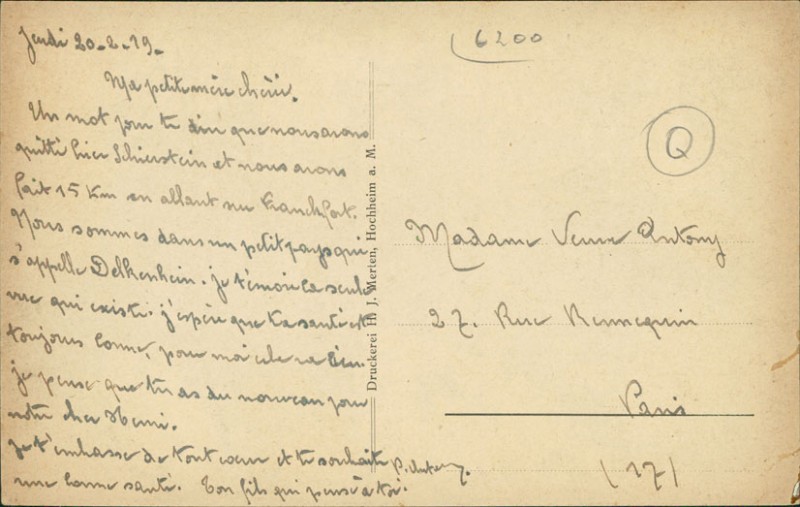 Jeudi 20-2-19-
Ma petite mère chérie.
Un mot pour te dire que nous avons
quitté hier Schierstein et nous avons
fait 15 Km en allant sur Franckfort.
Nous sommes dans un petit pays qui
s'appelle Delkenhein. je t'envoie la seule
vue qui existe. j'espère que ta santé est
toujours bonne, pour moi cela va bien.
je pense que tu as du nouveau pour
notre cher Henri.
je t'embrasse de tout cœur et te souhaite
une bonne santé. Ton fils qui pense à toi.
P. Antony.
Druckerei H. J. Merten, Hochheim a. M.
6200
Q
Madame Veuve Antony
27. Rue Rennequin
Paris
(17)